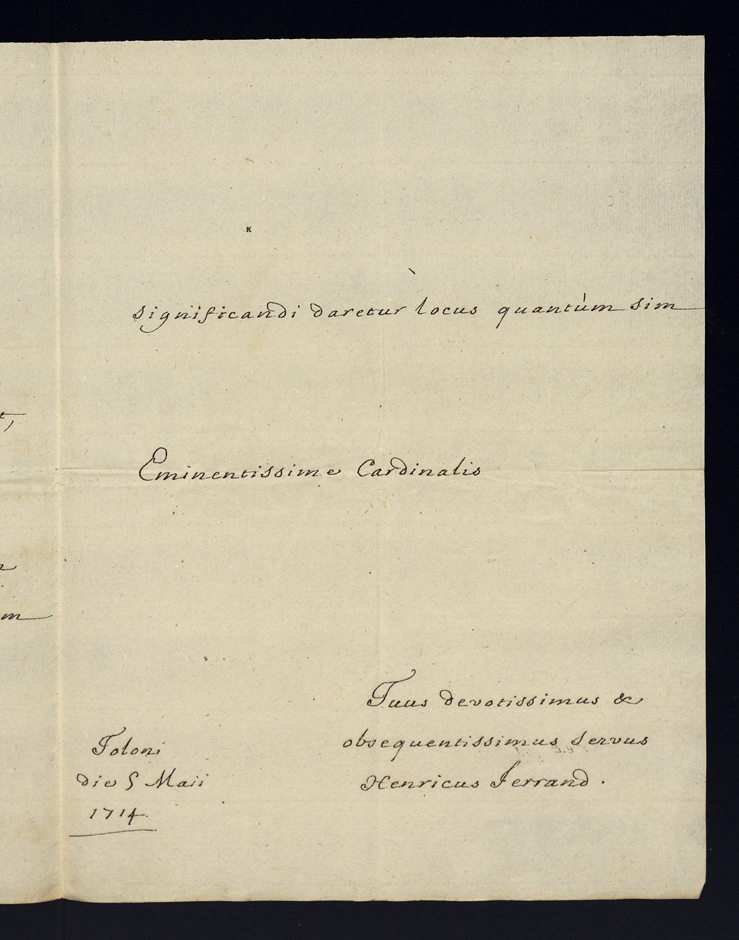 significandi daretur locus quantùm sim
Eminentissime Cardinalis
Tuus devotissimus &
obsequentissimus servus
Henricus Ferrand.
Toloni
die 5 Maii
1714.